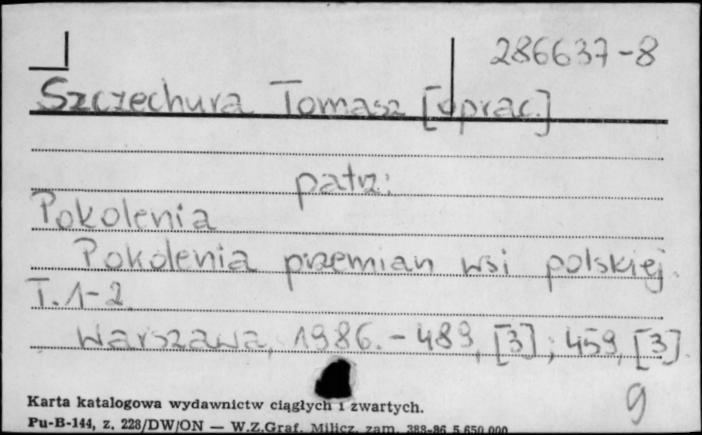 286637-8
Szczechura Tomasz [oprac.]
patrz:
Pokolenia
Pokolenia przemian wsi polskiej.
T. 1-2
Warszawa, 1986. - 489, [3]; 459, [3].
9
Karta katalogowa wydawnictw ciągłych i zwartych.
Pu-B-144, z. 228/DW/ON — W.Z.Graf. Milicz, zam. 388-86 5 650 000